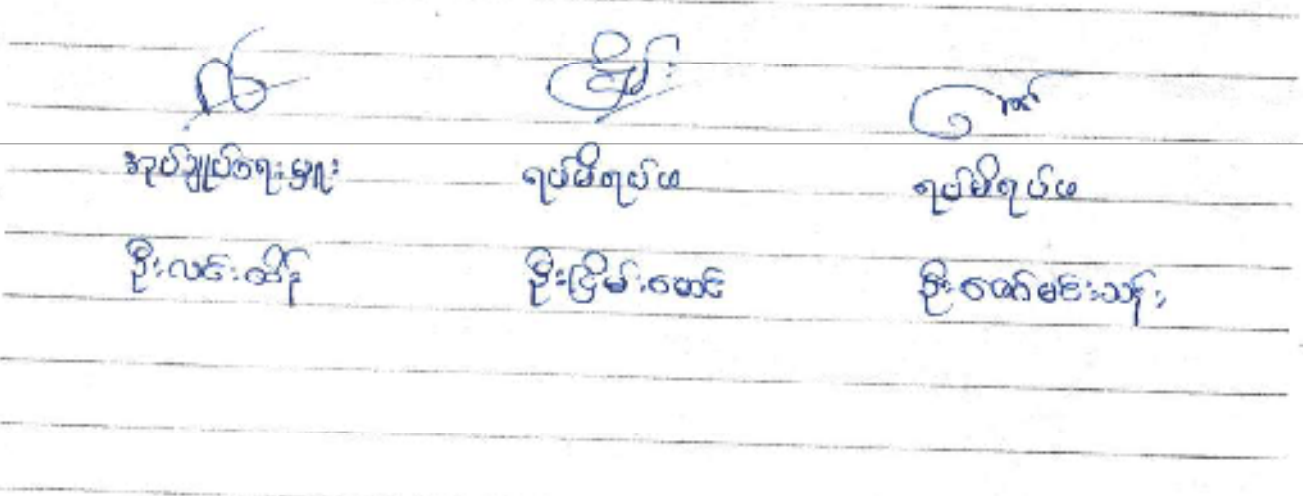 အုပ်ချုပ်ရေးမှူး ရပ်မိရပ်ဖ ရပ်မိရပ်ဖ
ဦးလင်းထိန် ဦးငြိမ်းမောင် ဦးဇော်မင်းသန်း